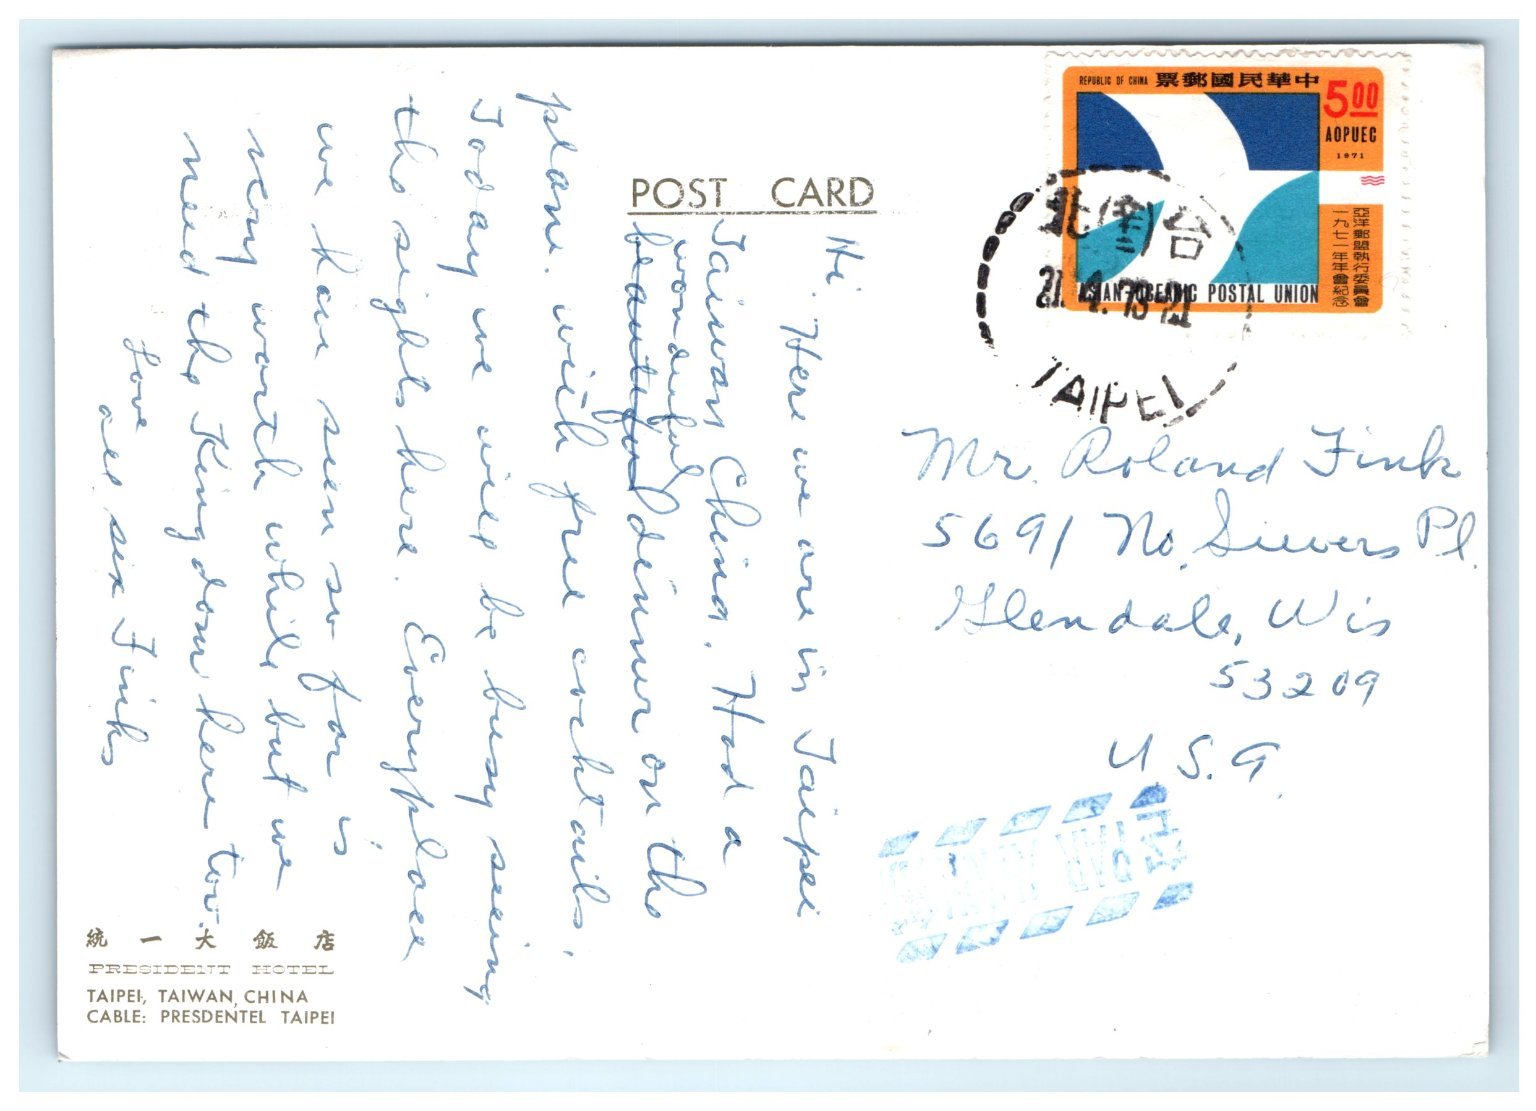 POST CARD
Hi. Here we are in Taipei
Taiwan China. Had a
wonderful
beautiful dinner on the
plane. with free cocktails.
Today we will be busy seeing
the sights here. Everyplace
we have seen so far is
very worth while but we
need the King down here too.
Love
all six Finks
統一大飯店
PRESIDENT HOTEL
TAIPEI, TAIWAN, CHINA
CABLE: PRESDENTEL TAIPEI
REPUBLIC OF CHINA 票郵國民華中
5.00
AOPUEC
1971
亞洋郵盟執行委員會
一九七一年年會紀念
ASIAN-OCEANIC POSTAL UNION
北 台
TAIPEI
Mr. Roland Fink
5691 No. Sievers Pl.
Glendale, Wis
53209
U.S.A.
PAR AVION